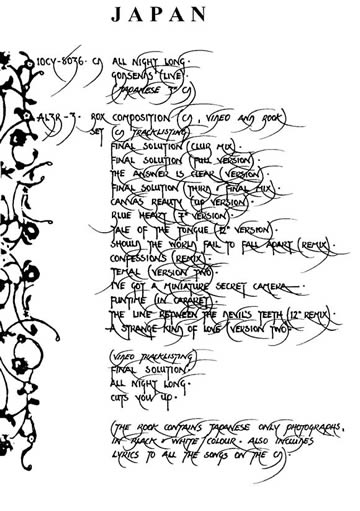 JAPAN
10CY-8036. CD ALL NIGHT LONG.
GOTSENIS (LIVE).
(JAPANESE 3" CD)
ALBR-3. BOX COMPOSITION (CD, VIDEO AND BOOK)
SET (CD TRACKLISTING)
FINAL SOLUTION (CLUB MIX).
FINAL SOLUTION (FULL VERSION).
THE ANSWER IS CLEAR (VERSION).
FINAL SOLUTION (THIRD & FINAL MIX).
CANVAS BEAUTY (LP VERSION).
BLUE HEART (7" VERSION).
TALE OF THE TONGUE (12" VERSION).
SHOULD THE WORLD FAIL TO FALL APART (REMIX).
CONFESSIONS (REMIX).
TEMAL (VERSION TWO).
I'VE GOT A MINIATURE SECRET CAMERA.
FUNTIME (IN CABARET).
THE LINE BETWEEN THE DEVIL'S TEETH (12" REMIX).
A STRANGE KIND OF LOVE (VERSION TWO).
(VIDEO TRACKLISTING)
FINAL SOLUTION.
ALL NIGHT LONG.
CUTS YOU UP.
(THE BOOK CONTAINS JAPANESE ONLY PHOTOGRAPHS,
IN BLACK & WHITE / COLOUR. ALSO INCLUDES
LYRICS TO ALL THE SONGS ON THE CD).